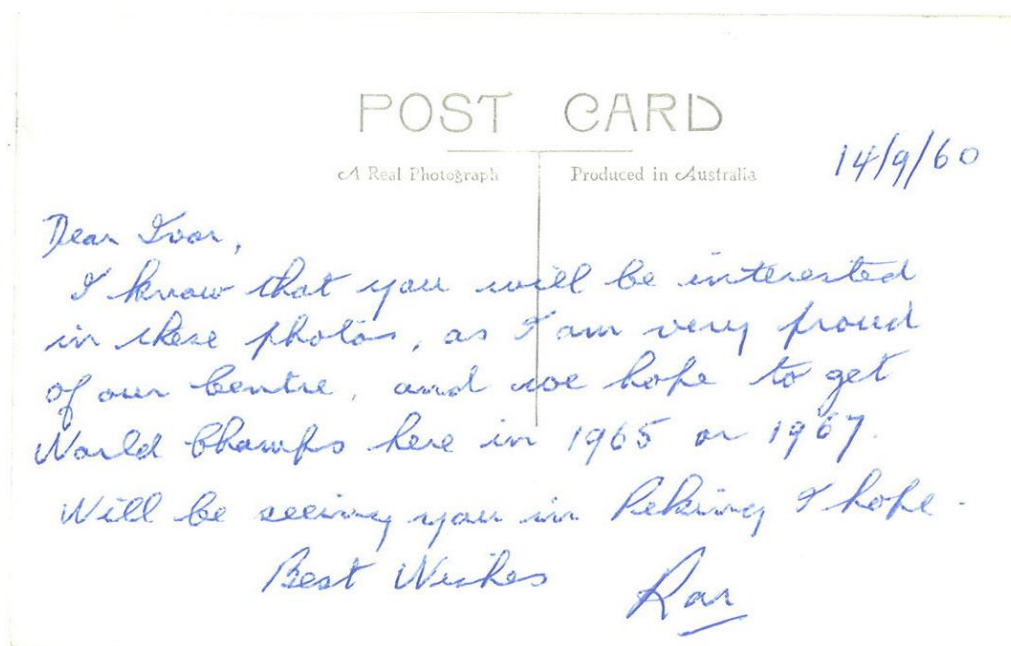 POST CARD
A Real Photograph Produced in Australia
14/9/60
Dear Ivor,
I know that you will be interested
in these photos, as I am very proud
of our Centre, and we hope to get
World Champs here in 1965 or 1967.
Will be seeing you in Peking I hope.
Best Wishes